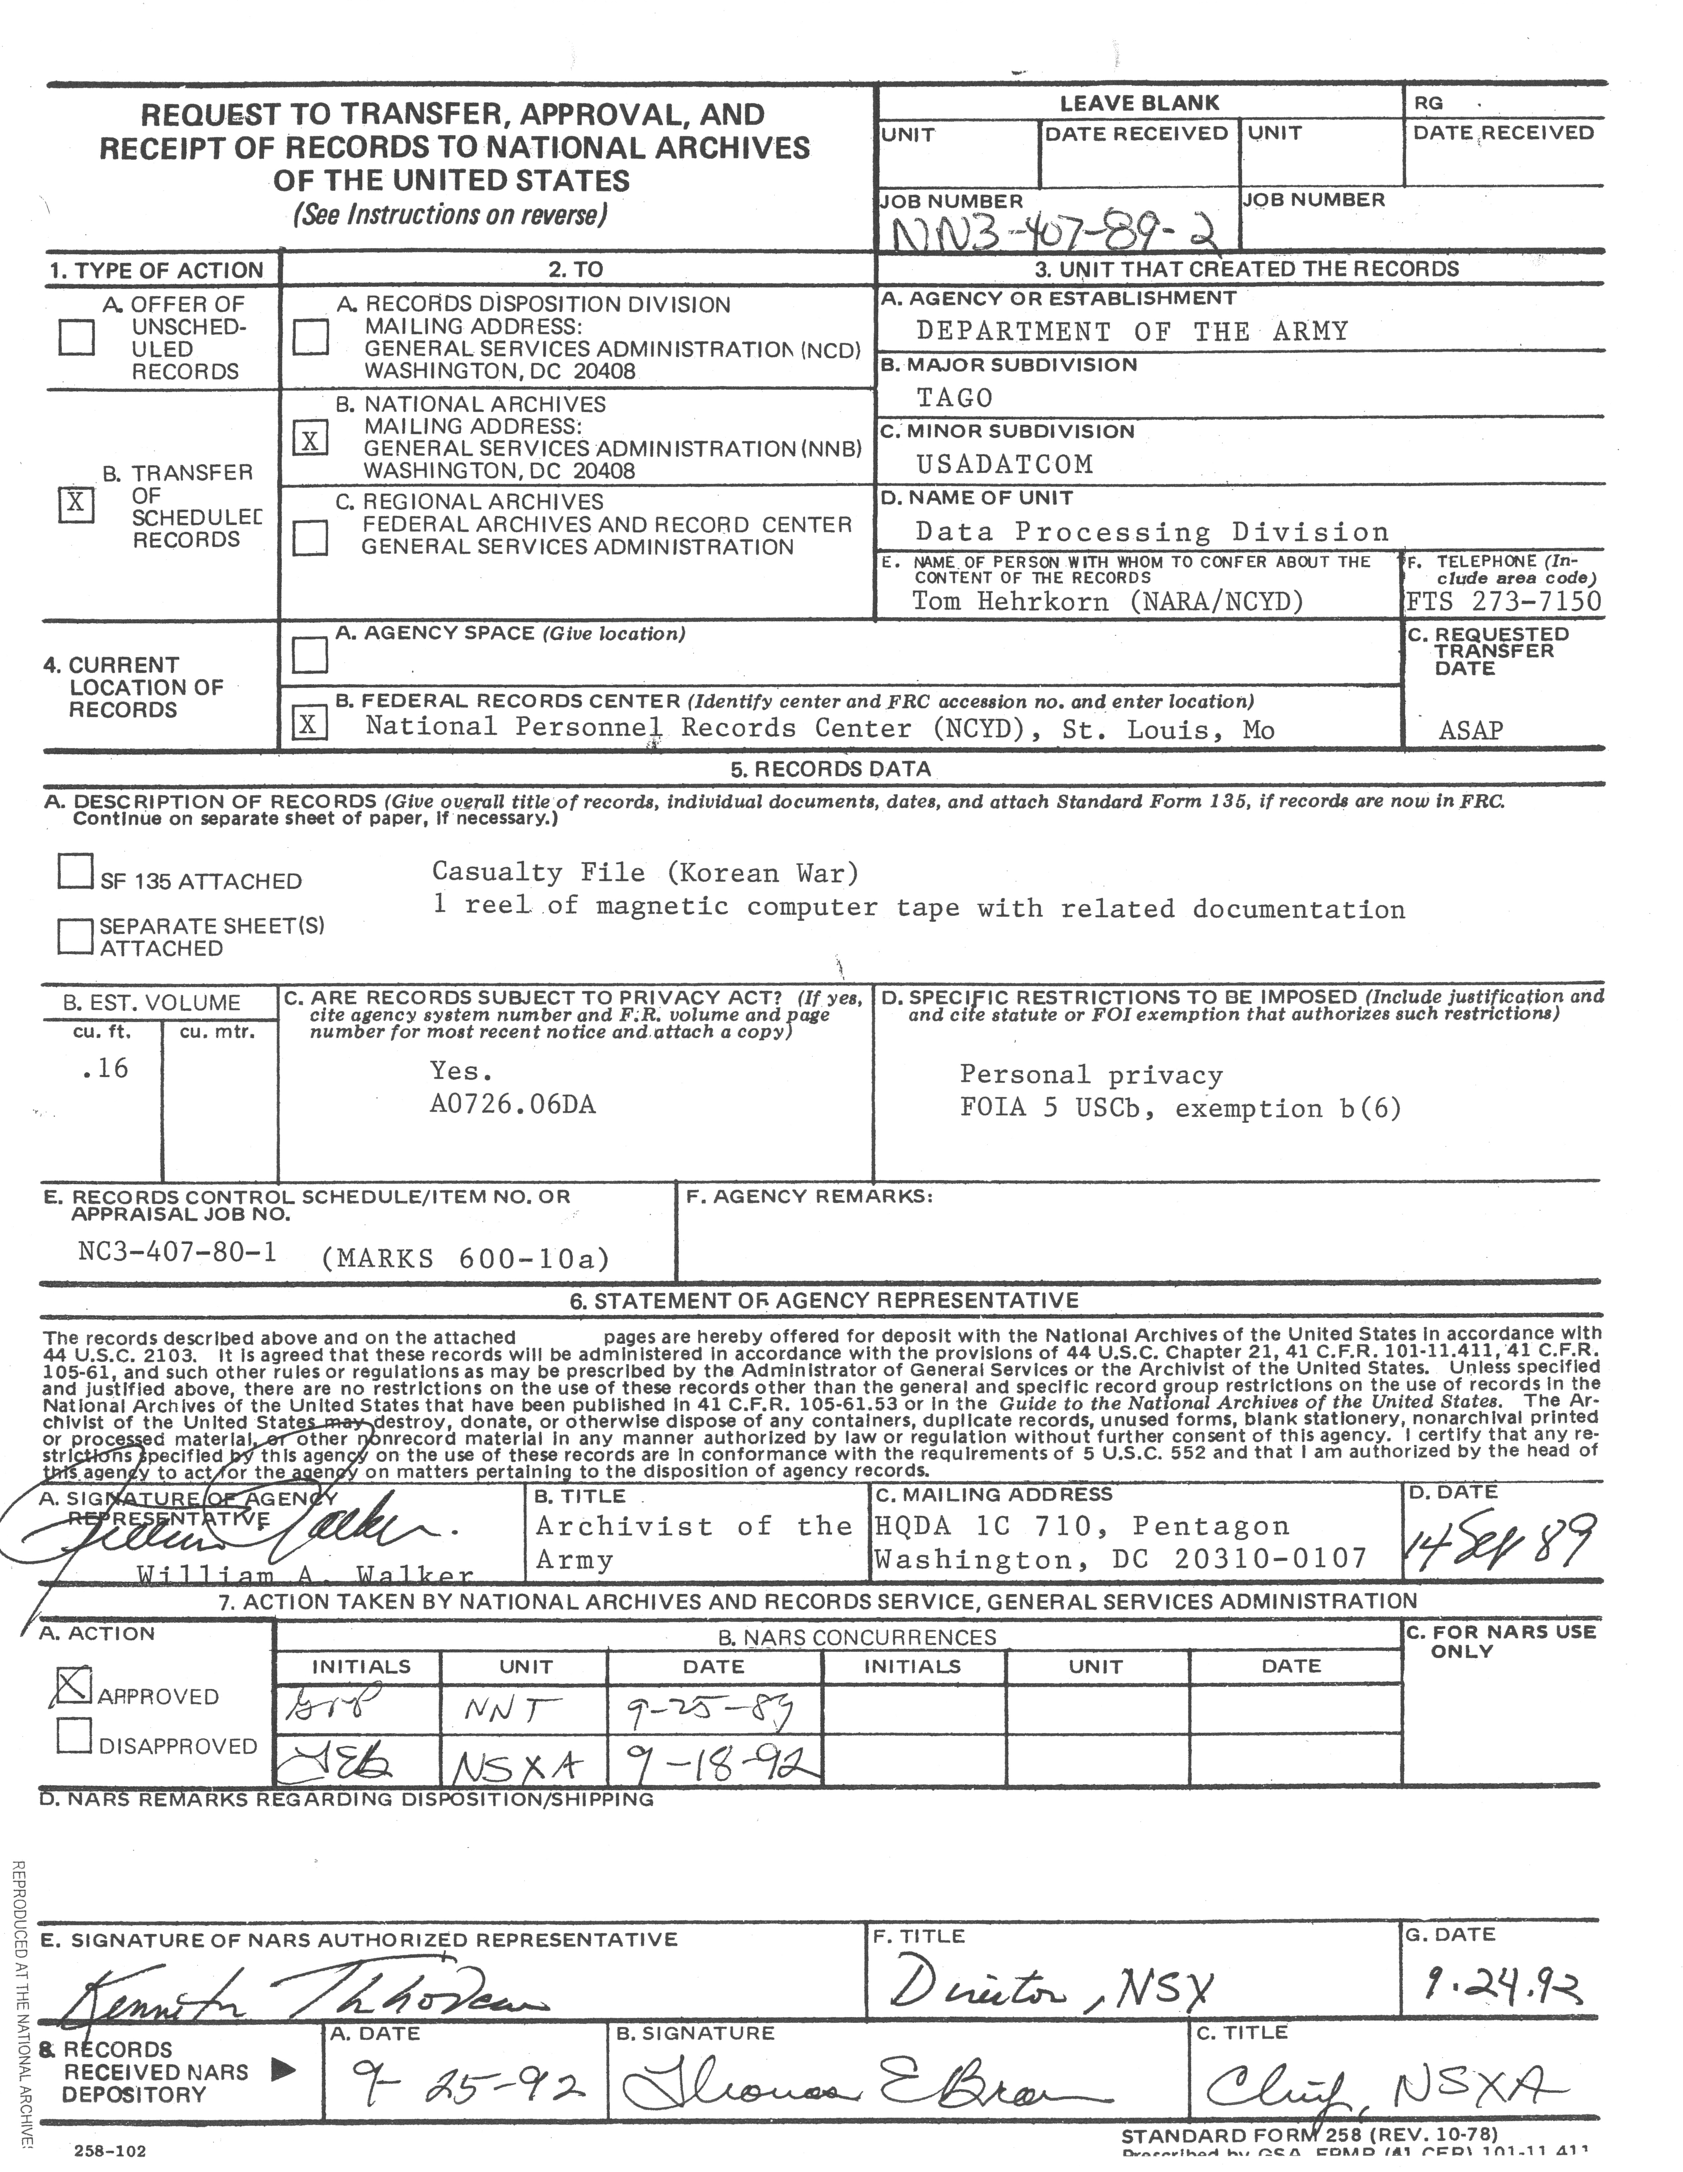 REQUEST TO TRANSFER, APPROVAL, AND
RECEIPT OF RECORDS TO NATIONAL ARCHIVES
OF THE UNITED STATES
(See Instructions on reverse)
LEAVE BLANK
RG
UNIT
DATE RECEIVED
UNIT
DATE RECEIVED
JOB NUMBER
NN3-407-89-2
JOB NUMBER
1. TYPE OF ACTION
A. OFFER OF
UNSCHED-
ULED
RECORDS
X
B. TRANSFER
OF
SCHEDULED
RECORDS
2. TO
A. RECORDS DISPOSITION DIVISION
MAILING ADDRESS:
GENERAL SERVICES ADMINISTRATION (NCD)
WASHINGTON, DC 20408
X
B. NATIONAL ARCHIVES
MAILING ADDRESS:
GENERAL SERVICES ADMINISTRATION (NNB)
WASHINGTON, DC 20408
C. REGIONAL ARCHIVES
FEDERAL ARCHIVES AND RECORD CENTER
GENERAL SERVICES ADMINISTRATION
3. UNIT THAT CREATED THE RECORDS
A. AGENCY OR ESTABLISHMENT
DEPARTMENT OF THE ARMY
B. MAJOR SUBDIVISION
TAGO
C. MINOR SUBDIVISION
USADATCOM
D. NAME OF UNIT
Data Processing Division
E. NAME OF PERSON WITH WHOM TO CONFER ABOUT THE
CONTENT OF THE RECORDS
Tom Hehrkorn (NARA/NCYD)
F. TELEPHONE (In-
clude area code)
FTS 273-7150
4. CURRENT
LOCATION OF
RECORDS
A. AGENCY SPACE (Give location)
X
B. FEDERAL RECORDS CENTER (Identify center and FRC accession no. and enter location)
National Personnel Records Center (NCYD), St. Louis, Mo
C. REQUESTED
TRANSFER
DATE
ASAP
5. RECORDS DATA
A. DESCRIPTION OF RECORDS (Give overall title of records, individual documents, dates, and attach Standard Form 135, if records are now in FRC.
Continue on separate sheet of paper, if necessary.)
SF 135 ATTACHED
SEPARATE SHEET(S)
ATTACHED
Casualty File (Korean War)
1 reel of magnetic computer tape with related documentation
B. EST. VOLUME
cu. ft.
cu. mtr.
.16
C. ARE RECORDS SUBJECT TO PRIVACY ACT? (If yes,
cite agency system number and F.R. volume and page
number for most recent notice and attach a copy)
Yes.
A0726.06DA
D. SPECIFIC RESTRICTIONS TO BE IMPOSED (Include justification and
and cite statute or FOI exemption that authorizes such restrictions)
Personal privacy
FOIA 5 USCb, exemption b(6)
E. RECORDS CONTROL SCHEDULE/ITEM NO. OR
APPRAISAL JOB NO.
NC3-407-80-1 (MARKS 600-10a)
F. AGENCY REMARKS:
6. STATEMENT OF AGENCY REPRESENTATIVE
The records described above and on the attached pages are hereby offered for deposit with the National Archives of the United States in accordance with
44 U.S.C. 2103. It is agreed that these records will be administered in accordance with the provisions of 44 U.S.C. Chapter 21, 41 C.F.R. 101-11.411, 41 C.F.R.
105-61, and such other rules or regulations as may be prescribed by the Administrator of General Services or the Archivist of the United States. Unless specified
and justified above, there are no restrictions on the use of these records other than the general and specific record group restrictions on the use of records in the
National Archives of the United States that have been published in 41 C.F.R. 105-61.53 or in the Guide to the National Archives of the United States. The Ar-
chivist of the United States may destroy, donate, or otherwise dispose of any containers, duplicate records, unused forms, blank stationery, nonarchival printed
or processed material, or other nonrecord material in any manner authorized by law or regulation without further consent of this agency. I certify that any re-
strictions specified by this agency on the use of these records are in conformance with the requirements of 5 U.S.C. 552 and that I am authorized by the head of
this agency to act for the agency on matters pertaining to the disposition of agency records.
A. SIGNATURE OF AGENCY
REPRESENTATIVE
William A. Walker
B. TITLE
Archivist of the
Army
C. MAILING ADDRESS
HQDA 1C 710, Pentagon
Washington, DC 20310-0107
D. DATE
14 Sep 89
7. ACTION TAKEN BY NATIONAL ARCHIVES AND RECORDS SERVICE, GENERAL SERVICES ADMINISTRATION
A. ACTION
X APPROVED
DISAPPROVED
B. NARS CONCURRENCES
INITIALS UNIT DATE INITIALS UNIT DATE
NNT 9-25-89
TEB NSXA 9-18-92
C. FOR NARS USE
ONLY
D. NARS REMARKS REGARDING DISPOSITION/SHIPPING
E. SIGNATURE OF NARS AUTHORIZED REPRESENTATIVE
Kenneth Thibodeau
F. TITLE
Director, NSX
G. DATE
9.24.92
8. RECORDS
RECEIVED NARS
DEPOSITORY
A. DATE
9-25-92
B. SIGNATURE
Thomas E Brown
C. TITLE
Chief, NSXA
258-102
STANDARD FORM 258 (REV. 10-78)
Prescribed by GSA, FPMR (41 CFR) 101-11.411
REPRODUCED AT THE NATIONAL ARCHIVES